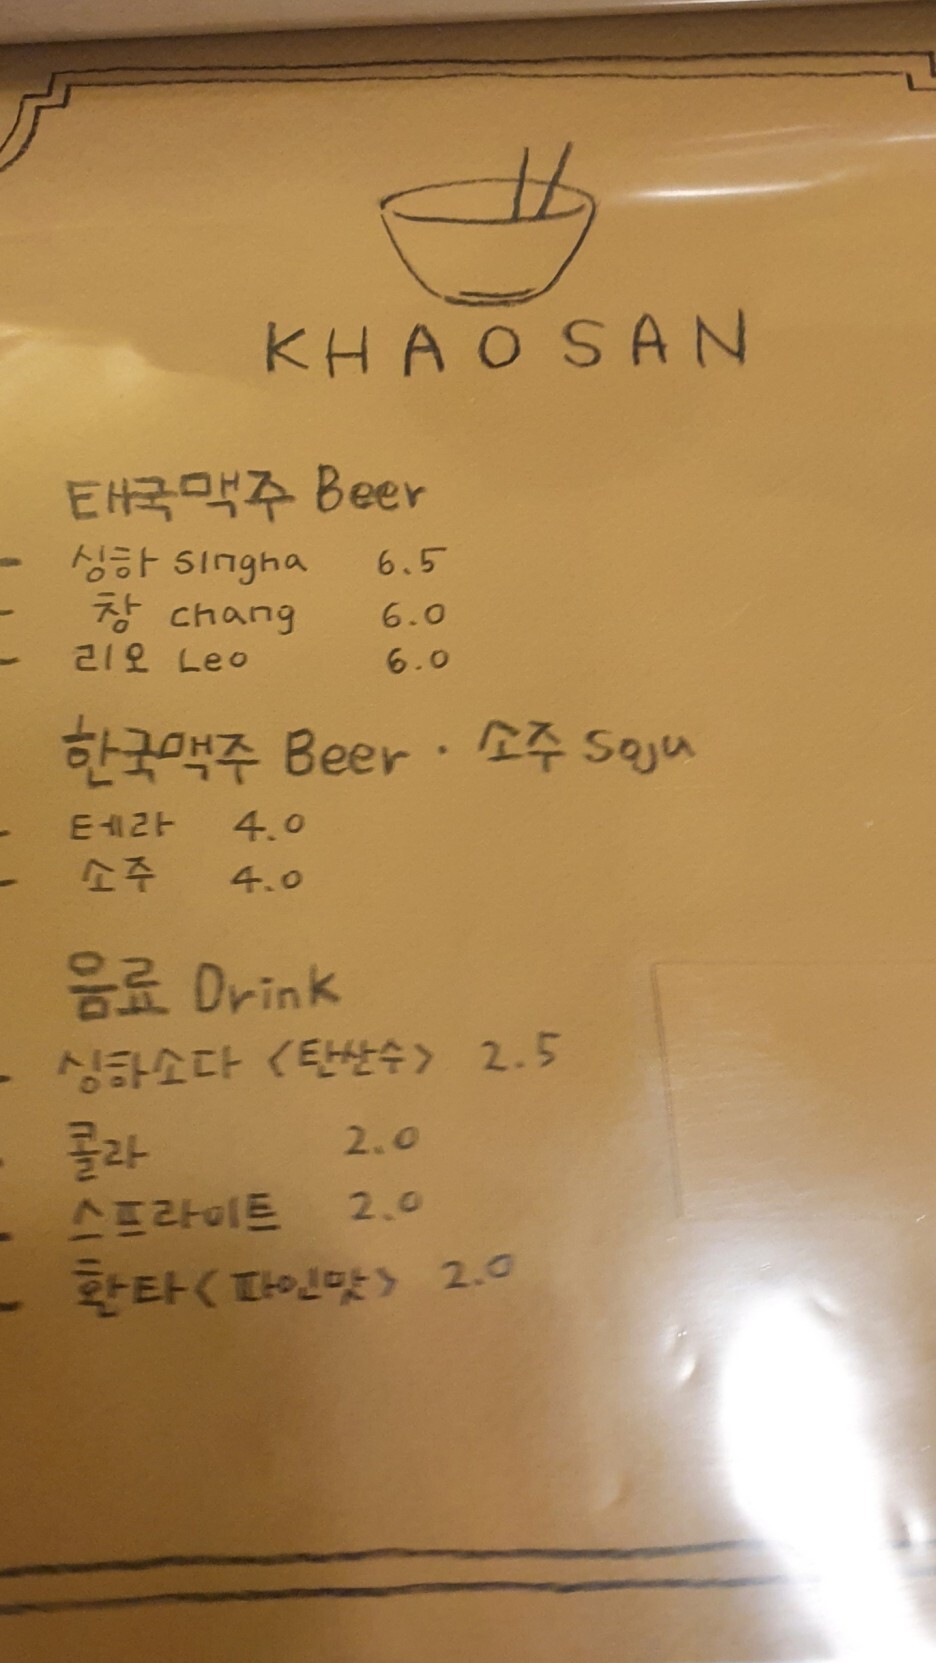 KHAOSAN
태국맥주 Beer
- 싱하 singha 6.5
- 창 chang 6.0
- 리오 Leo 6.0
한국맥주 Beer · 소주 Soju
- 테라 4.0
- 소주 4.0
음료 Drink
- 싱하소다 <탄산수> 2.5
- 콜라 2.0
- 스프라이트 2.0
- 환타 <파인맛> 2.0